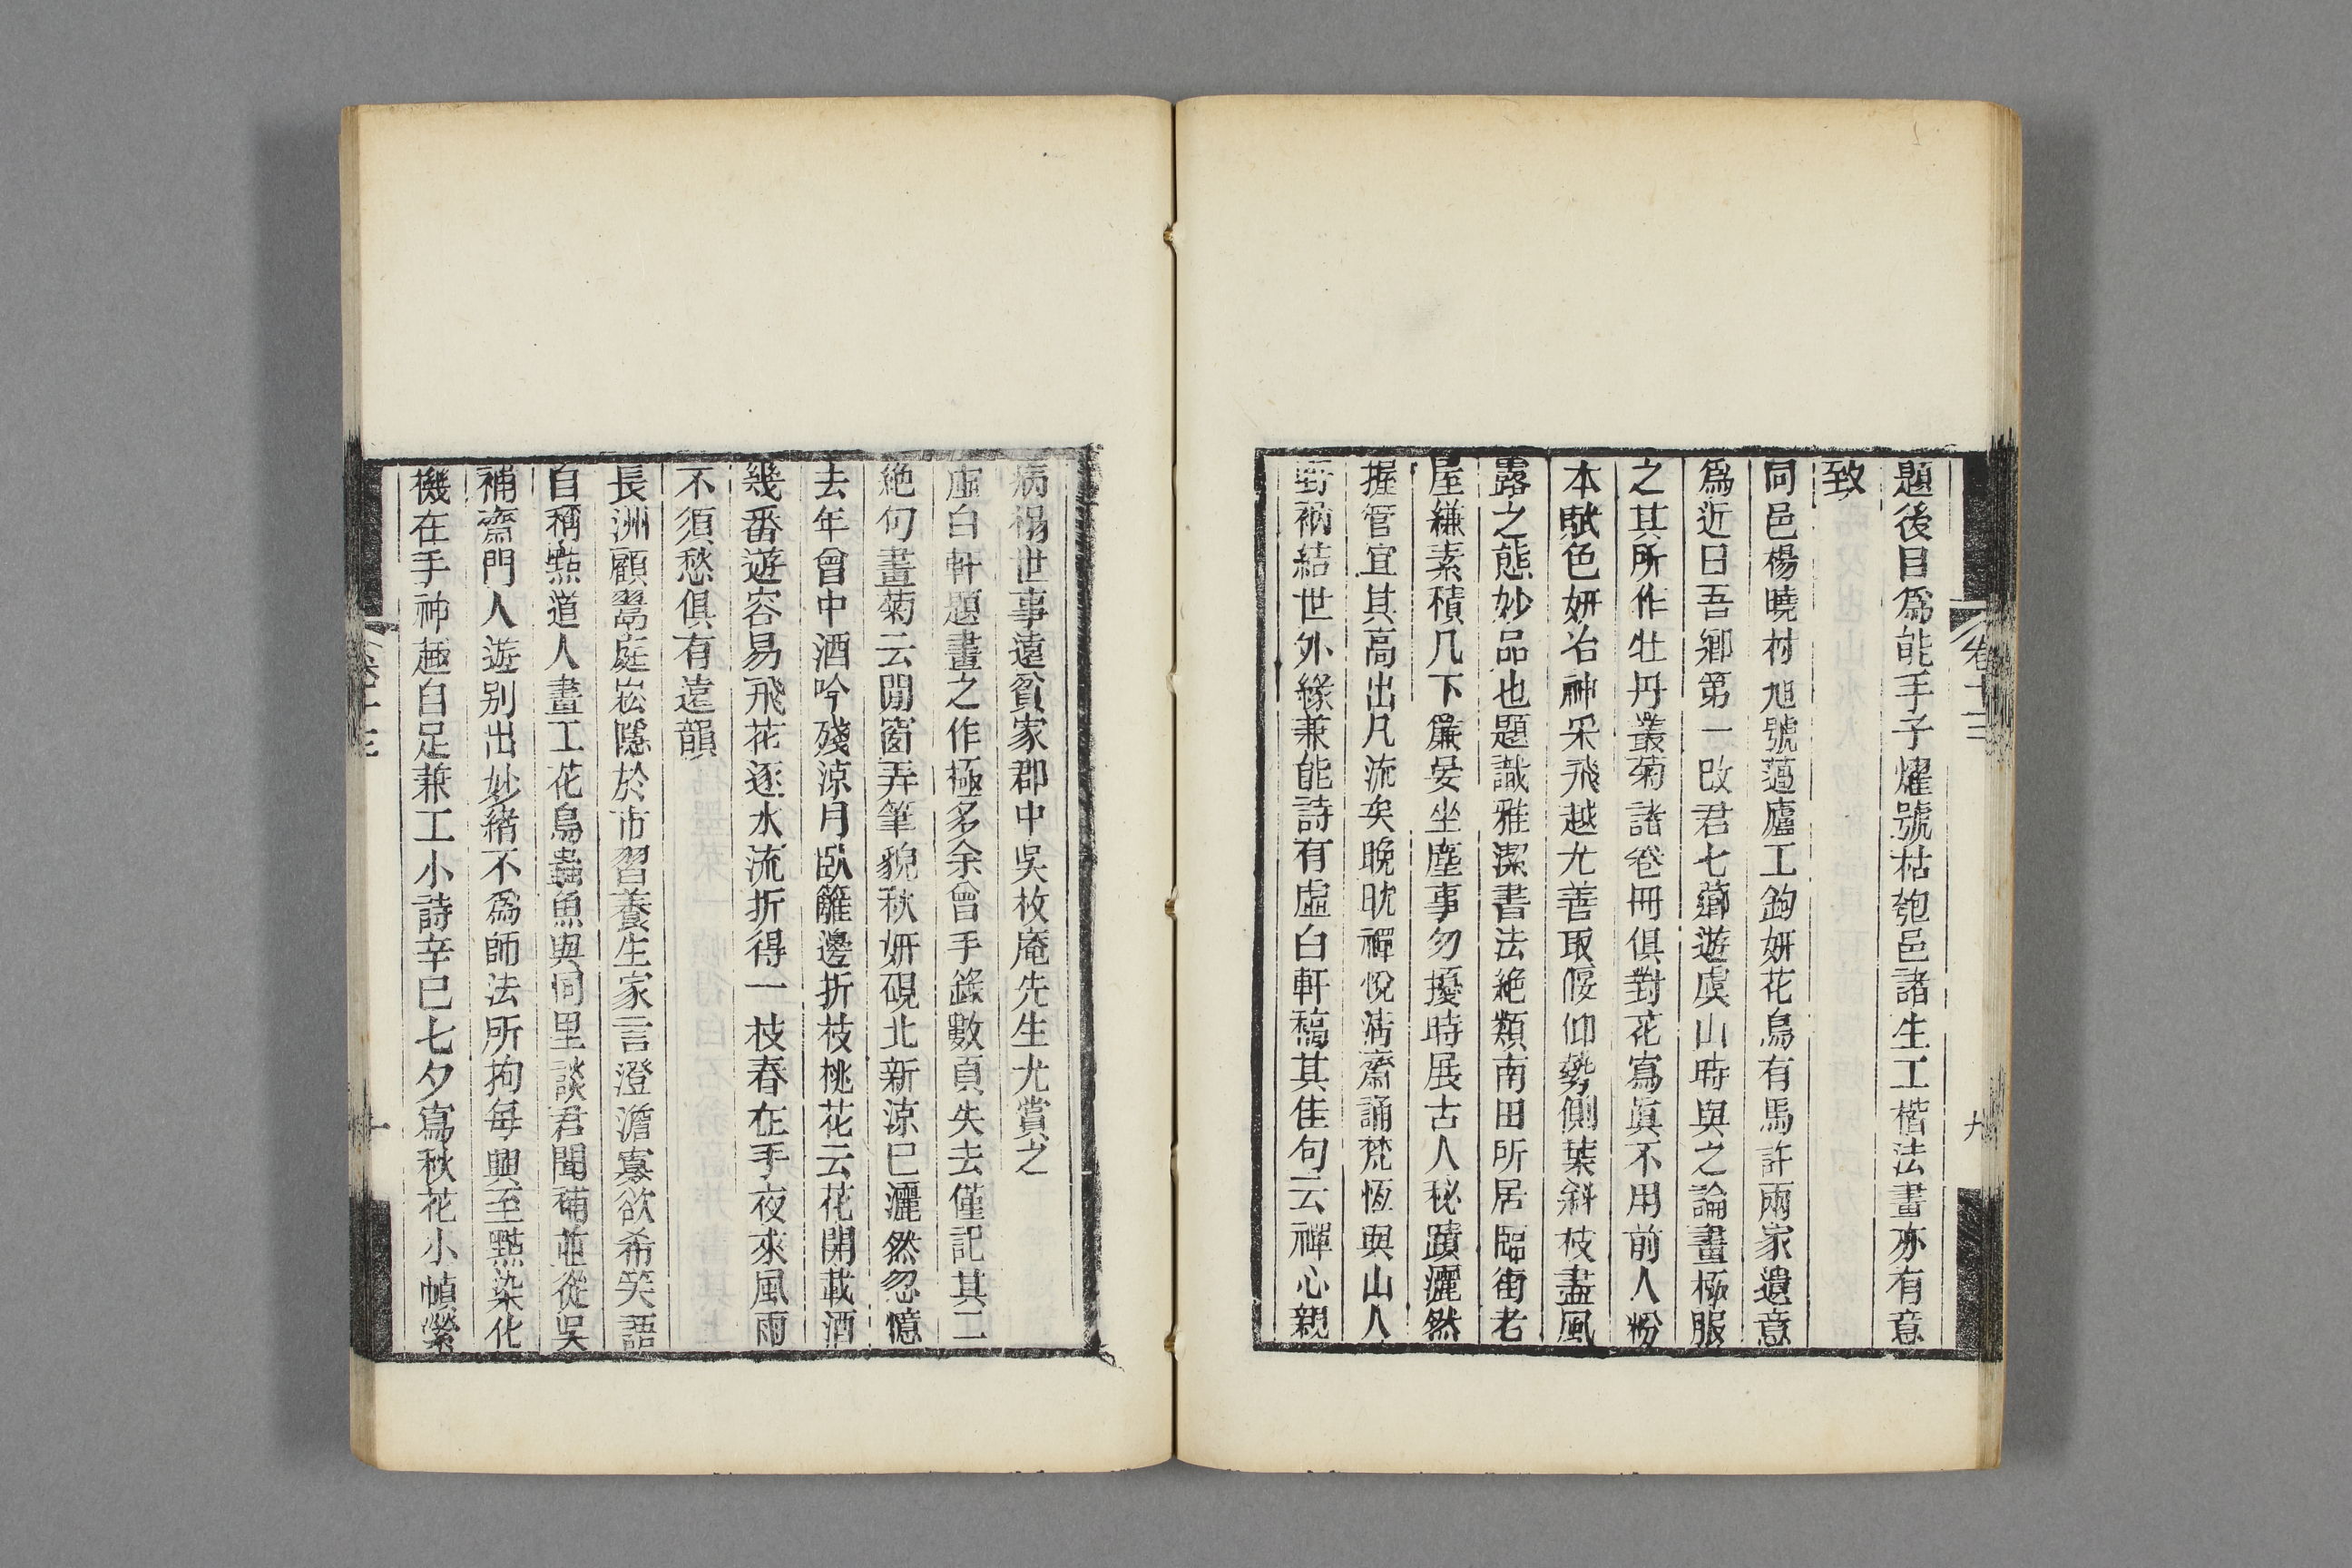 題後目爲能手子燿號枯匏邑諸生工楷法畫亦有意
致
同邑楊曉村旭號薖廬工鉤妍花鳥有馬許兩家遺意
爲近日吾鄉第一改君七薌遊虞山時與之論畫極服
之其所作牡丹叢菊諸卷冊俱對花寫眞不用前人粉
本賦色妍冶神采飛越尤善取偃仰勢側葉斜枝盡風
露之態妙品也題識雅潔書法絶類南田所居臨街老
屋縑素積几下簾晏坐塵事勿擾時展古人秘蹟灑然
握管宜其高出凡流矣晚耽禪悅淸齋誦梵恆與山人
野衲結世外緣兼能詩有虛白軒稿其佳句云禪心親
卷十三
九
病榻世事遠貧家郡中吳枚庵先生尤賞之
虛白軒題畫之作極多余曾手錄數頁失去僅記其二
絶句畫菊云閒窗弄筆貌秋妍硯北新涼已灑然忽憶
去年曾中酒吟殘涼月臥籬邊折枝桃花云花開載酒
幾番遊容易飛花逐水流折得一枝春在手夜來風雨
不須愁俱有遠韻
長洲顧翯庭崧隱於市習養生家言澄澹寡欲希笑語
自稱點道人畫工花鳥蟲魚與同里談君聞補並從吳
補齋門人遊别出妙緒不爲師法所拘每興至點染化
機在手神趣自足兼工小詩辛巳七夕寫秋花小幀縈
卷十三
十